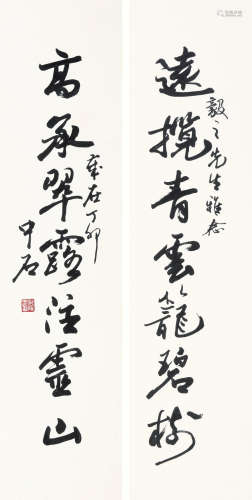 遠攬青雲籠碧樹
毅之先生雅念
高承翠露注靈山
歲在丁卯
中石